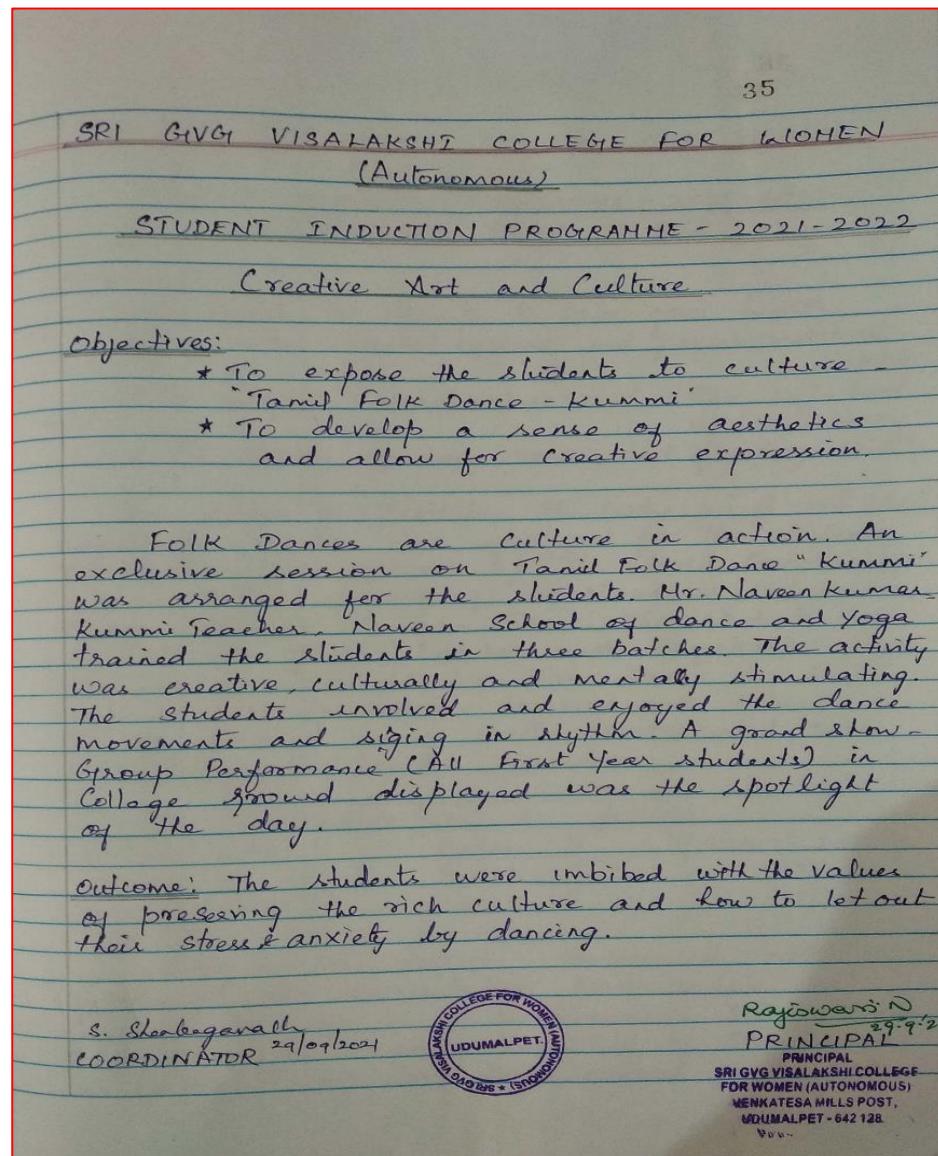 35
SRI GVG VISALAKSHI COLLEGE FOR WOMEN
(Autonomous)
STUDENT INDUCTION PROGRAMME - 2021-2022
Creative Art and Culture
Objectives:
* To expose the students to culture -
"Tamil Folk Dance - Kummi"
* To develop a sense of aesthetics
and allow for creative expression.
Folk Dances are culture in action. An
exclusive session on Tamil Folk Dance "Kummi"
was arranged for the students. Mr. Naveen Kumar
Kummi Teacher, Naveen School of dance and Yoga
trained the students in three batches. The activity
was creative, culturally and mentally stimulating.
The students involved and enjoyed the dance
movements and siging in rhythm. A grand show-
Group Performance (All First Year students) in
College ground displayed was the spotlight
of the day.
Outcome: The students were imbibed with the values
of preserving the rich culture and how to let out
their stress & anxiety by dancing.
S.
COORDINATOR 29/09/2021
SRI GVG VISALAKSHI COLLEGE FOR WOMEN (AUTONOMOUS) *
UDUMALPET.
Rajeswari N
29-9-2
PRINCIPAL
PRINCIPAL
SRI GVG VISALAKSHI COLLEGE
FOR WOMEN (AUTONOMOUS)
VENKATESA MILLS POST,
UDUMALPET - 642 128.